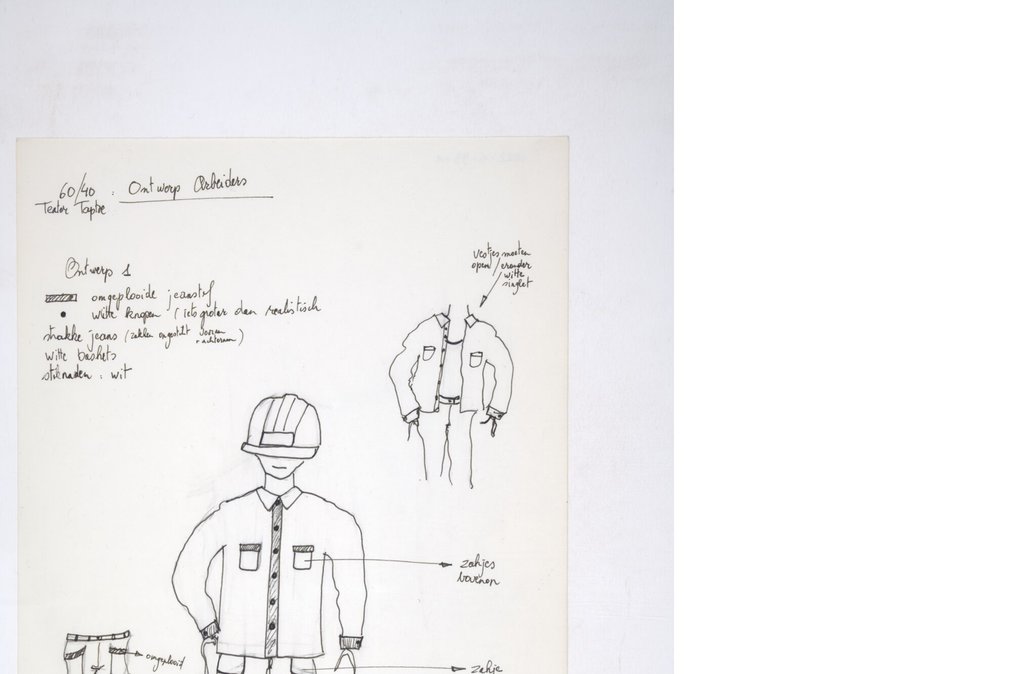 60/40 : Ontwerp Arbeiders
Teater Taptoe
Ontwerp 1
omgeplooide jeansstof
witte knopen (iets groter dan realistisch
strakke jeans (zakken opgestikt vooran
+ achteraan)
witte baskets
stiknaden : wit
vestjes moeten
open / eronder
witte
singlet
zakjes
bovenon
omgeplooid
zakje